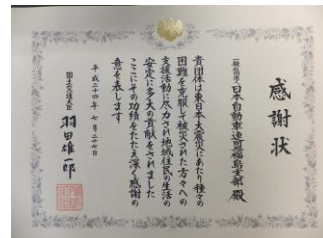 感謝状
一般社団法人日本自動車連盟福島支部 殿
貴団体は東日本大震災にあたり種々の
困難を克服して被災された方々への
支援活動に尽力され地域住民の生活の
安定に多大の貢献をされました
ここにその功績をたたえ深く感謝の
意を表します
平成二十四年 七月二十七日
国土交通大臣 羽田雄一郎